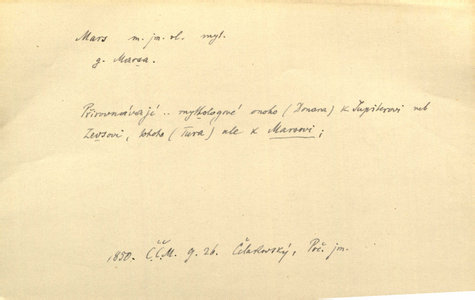 Mars m. jm. vl. myt.
g. Marsa.
Přirovnávají .. mythologové onoho (Donara) k Jupiterovi neb
Zevsovi, tohoto (Tura) ale k Marsovi;
1850. Č.Č.M. 9. 26. Čelakovský, Poč. jm.